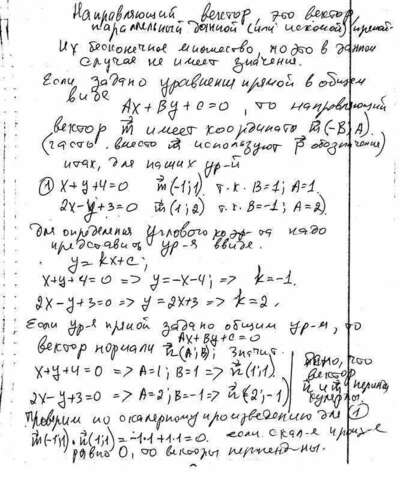 Направляющий вектор это вектор
параллельный данной (или искомой) прямой
Их бесконечное множество, но это в данном
случае не имеет значения.
Если задано уравнение прямой в общем
виде
Ax+By+c=0, то направляющий
вектор m⃗ имеет координаты m⃗(-B;A)
(часто вместо m⃗ используют p⃗ обозначение)
итак, для наших ур-й
① x+y+4=0 m⃗(-1;1) т.к. B=1; A=1.
2x-y+3=0 m⃗(1;2) т.к. B=-1; A=2)
Для определения углового коэф-та надо
представить ур-я в виде
y=kx+c;
x+y+4=0 => y=-x-4; => k=-1.
2x-y+3=0 => y=2x+3; => k=2.
Если ур-я прямой задано общим ур-м, то
Ax+By+c=0
вектор нормали n⃗(A;B); значит
x+y+4=0 => A=1; B=1 => n⃗(1;1)
2x-y+3=0 => A=2; B=-1 => n⃗(2;-1)
что
вектор
n⃗ и m⃗ перпенд
Проверим по скалярному произведению для ①
m⃗(-1;1)·n⃗(1;1)=-1·1+1·1=0. если скал-е произ-е
равно 0, то векторы перпенд-ны.